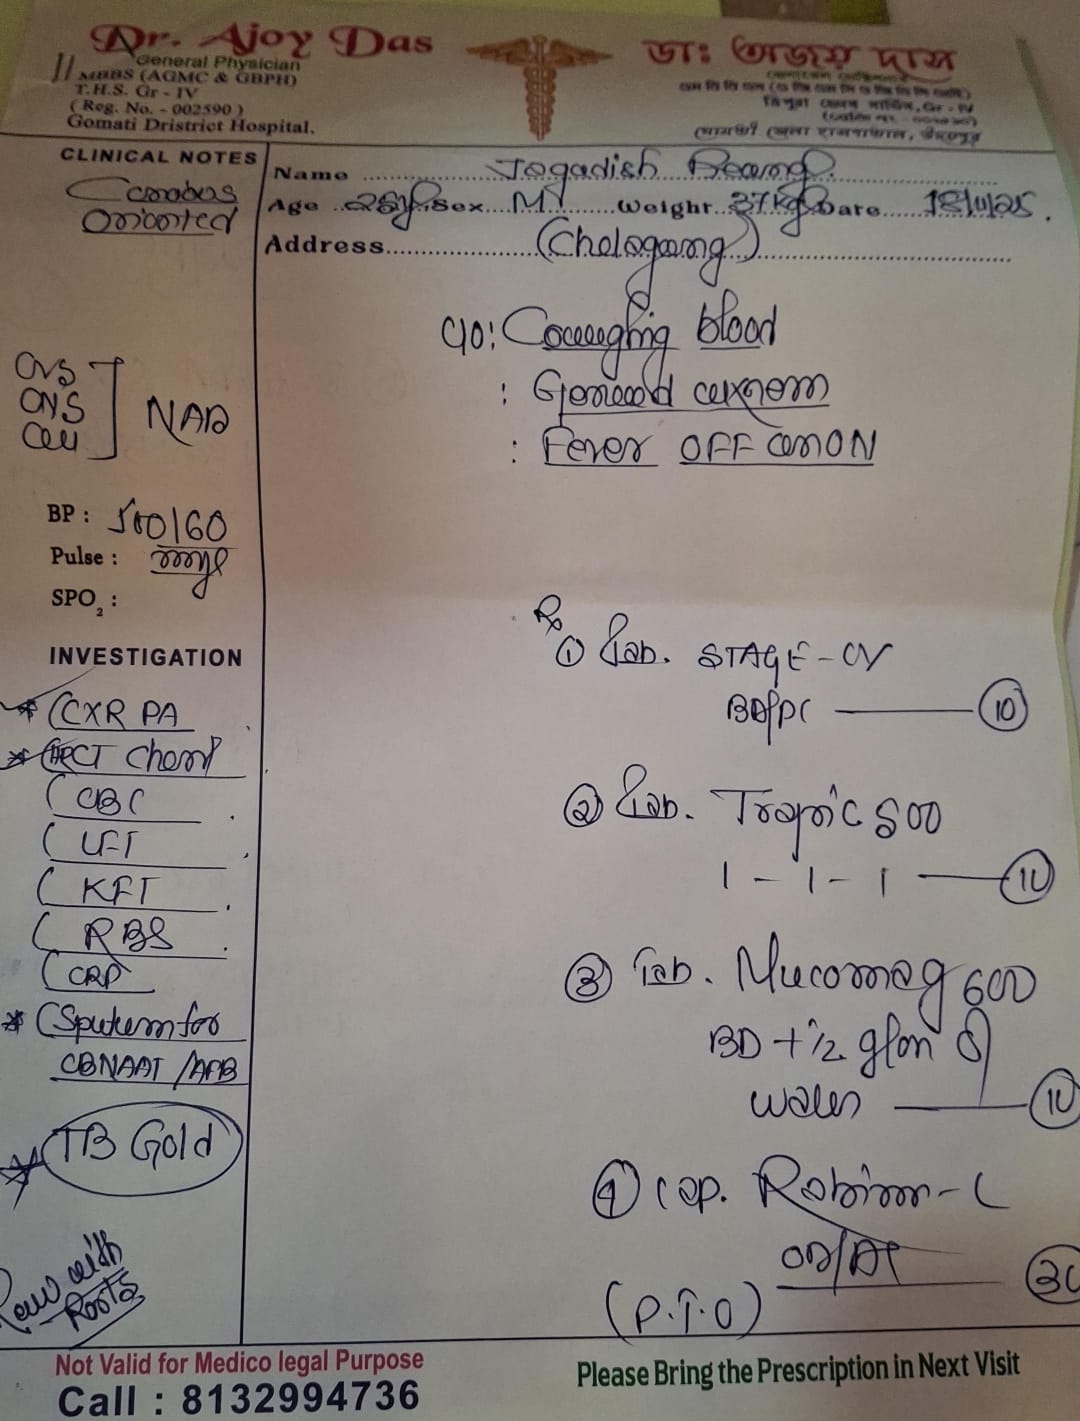 Dr. Ajoy Das
General Physician
MBBS (AGMC & GBPH)
T.H.S. Gr - IV
(Reg. No. - 002590)
Gomati Dristrict Hospital.
ডাঃ অজয় দাস
গোমতী জেলা হাসপাতাল, উদয়পুর
CLINICAL NOTES
Name Jogadish Reang.
Age Sex M Weight 37kg Date
Address (Chelagang)
C/O: blood
:
: Fever OFF ON
CVS
CNS
NAD
BP : 100/60
Pulse :
SPO2 :
INVESTIGATION
CXR PA
HRCT Chest
CBC
LFT
KFT
RBS
CRP
Sputum for
CBNAAT / AFB
TB Gold
Rev with
Rx
① Tab. STAGE - CV
BD/PC 10
② Tab. 500
1 - 1 - 1 10
③ Tab. Mucomag 600
BD + 1/2 glass of
water 10
④ Cap.
30
(P.T.O)
Not Valid for Medico legal Purpose
Call : 8132994736
Please Bring the Prescription in Next Visit